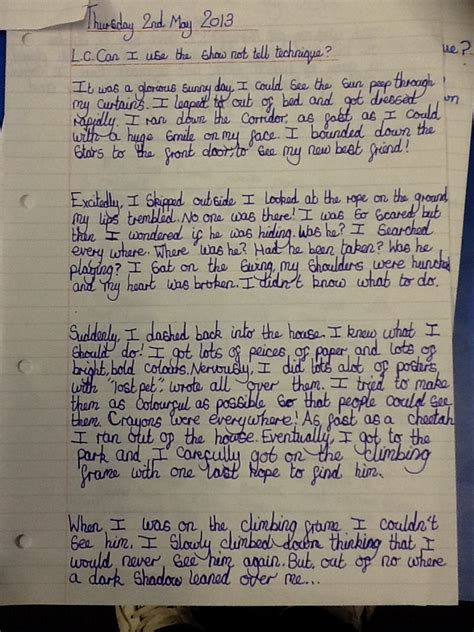 Thursday 2nd May 2013
L.C. Can I use the show not tell technique?
It was a glorious sunny day, I could see the sun peep through
my curtains. I leaped out of bed and got dressed
rapidly. I ran down the corridor, as fast as I could
with a huge smile on my face. I bounded down the
stars to the front door, to see my new best friend!
Excitedly, I skipped outside I looked at the rope on the ground
my lips trembled. No one was there! I was so scared but
then I wondered if he was hiding. Was he? I searched
every where. Where was he? Had he been taken? Was he
playing? I sat on the swing, my shoulders were hunched
and my heart was broken. I didn't know what to do.
Suddenly, I dashed back into the house. I knew what I
should do! I got lots of peices, of paper and lots of
bright, bold colours. Nervously, I did lots alot of posters
with "lost pet" wrote all over them. I tried to make
them as colourful as possible so that people could see
them. Crayons were everywhere! As fast as a cheetah
I ran out of the house. Eventually, I got to the
park and I carefully got on the climbing
frame with one last hope to find him.
When I was on the climbing frame I couldn't
see him. I slowly climbed down thinking that I
would never see him again. But, out of no where
a dark shadow leaned over me...
ue?